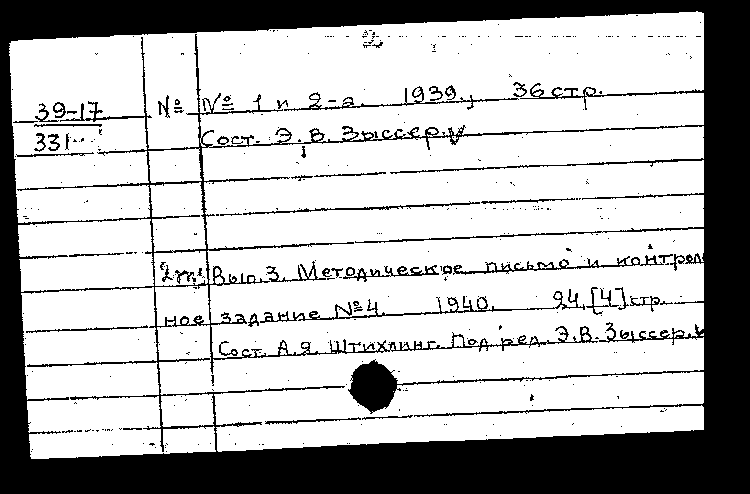 2
39-17 № № 1 и 2-а. 1939., 36 стр.
331
Сост. Э. В. Зыссер.
Вып. 3. Методическое письмо и контроль
ное задание № 4. 1940. 24, [4] стр.
Сост. А. Я. Штихлинг. Под ред. Э. В. Зыссер.